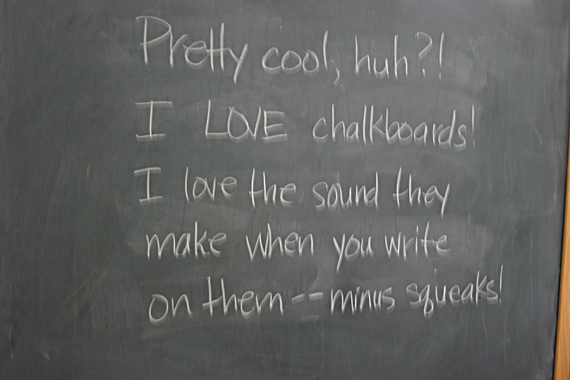 Pretty cool, huh?!
I LOVE chalkboards!
I love the sound they
make when you write
on them -- minus squeaks!